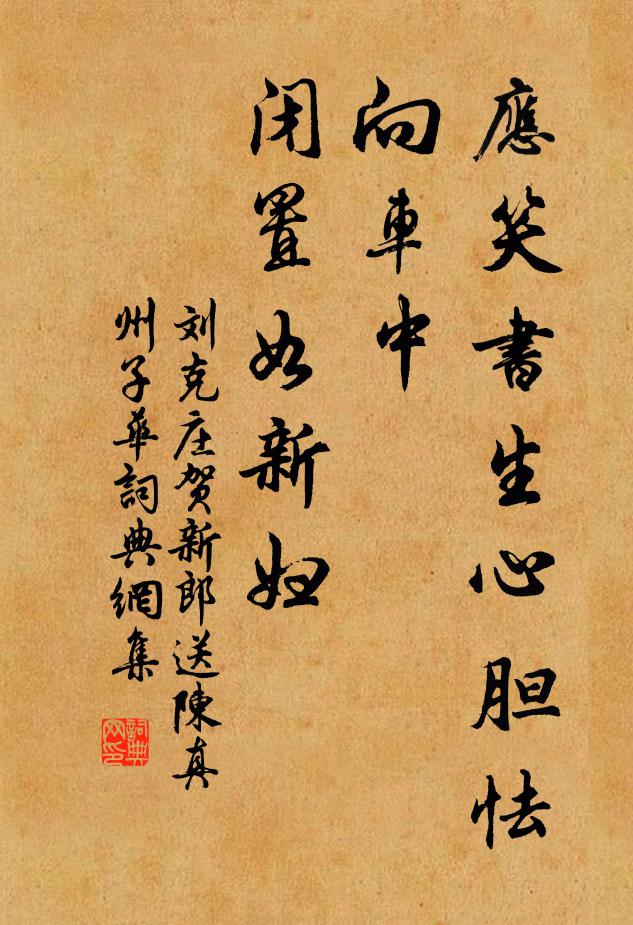 應笑書生心胆怯
向車中
闭置如新妇
刘克庄贺新郎送陳真
州子華詞典網集
詞典
网印